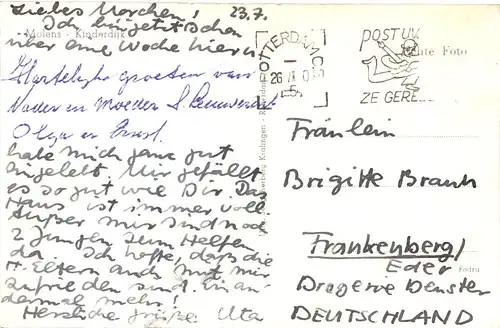 23.7.
Liebes Morchen!
Ich bin jetzt schon
Molens - Kinderdijk
über eine Woche hier u.
Hartelijke groeten van
Vader en Moeder
Olga en
habe mich ganz gut
eingelebt. Mir gefällt
es so gut wie Dir. Das
Haus ist immer voll.
Außer mir sind noch
2 Jungen zum Helfen
da. Ich hoffe, daß die
H. Eltern auch mit mir
zufrieden sind. Ein an-
dermal mehr!
Herzliche Grüße Uta
ROTTERDAM CS
26
POST UW
ZE GERE
Echte Foto
Fräulein
Brigitte Braun
Frankenberg/
Eder
Drogerie Denster
DEUTSCHLAND